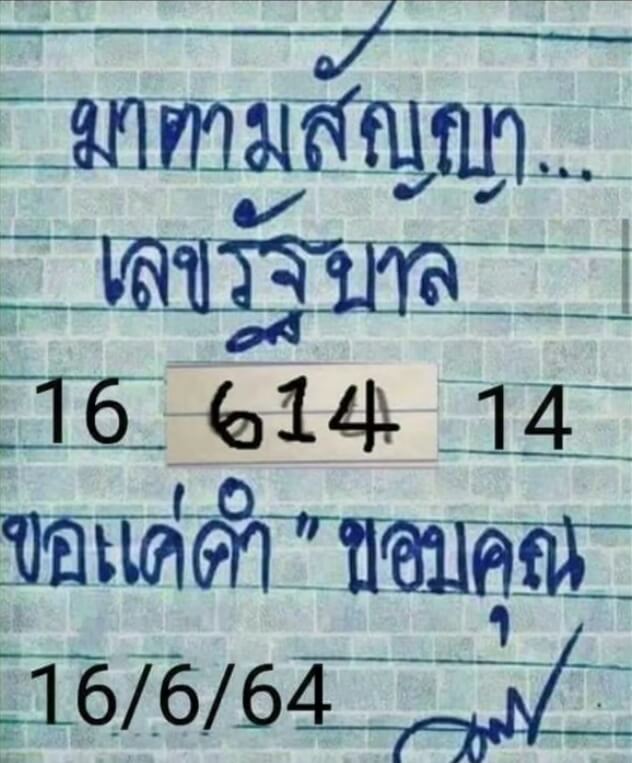 มาตามสัญญา...
เลขรัฐบาล
16 614 14
ขอแค่คำ " ขอบคุณ
16/6/64